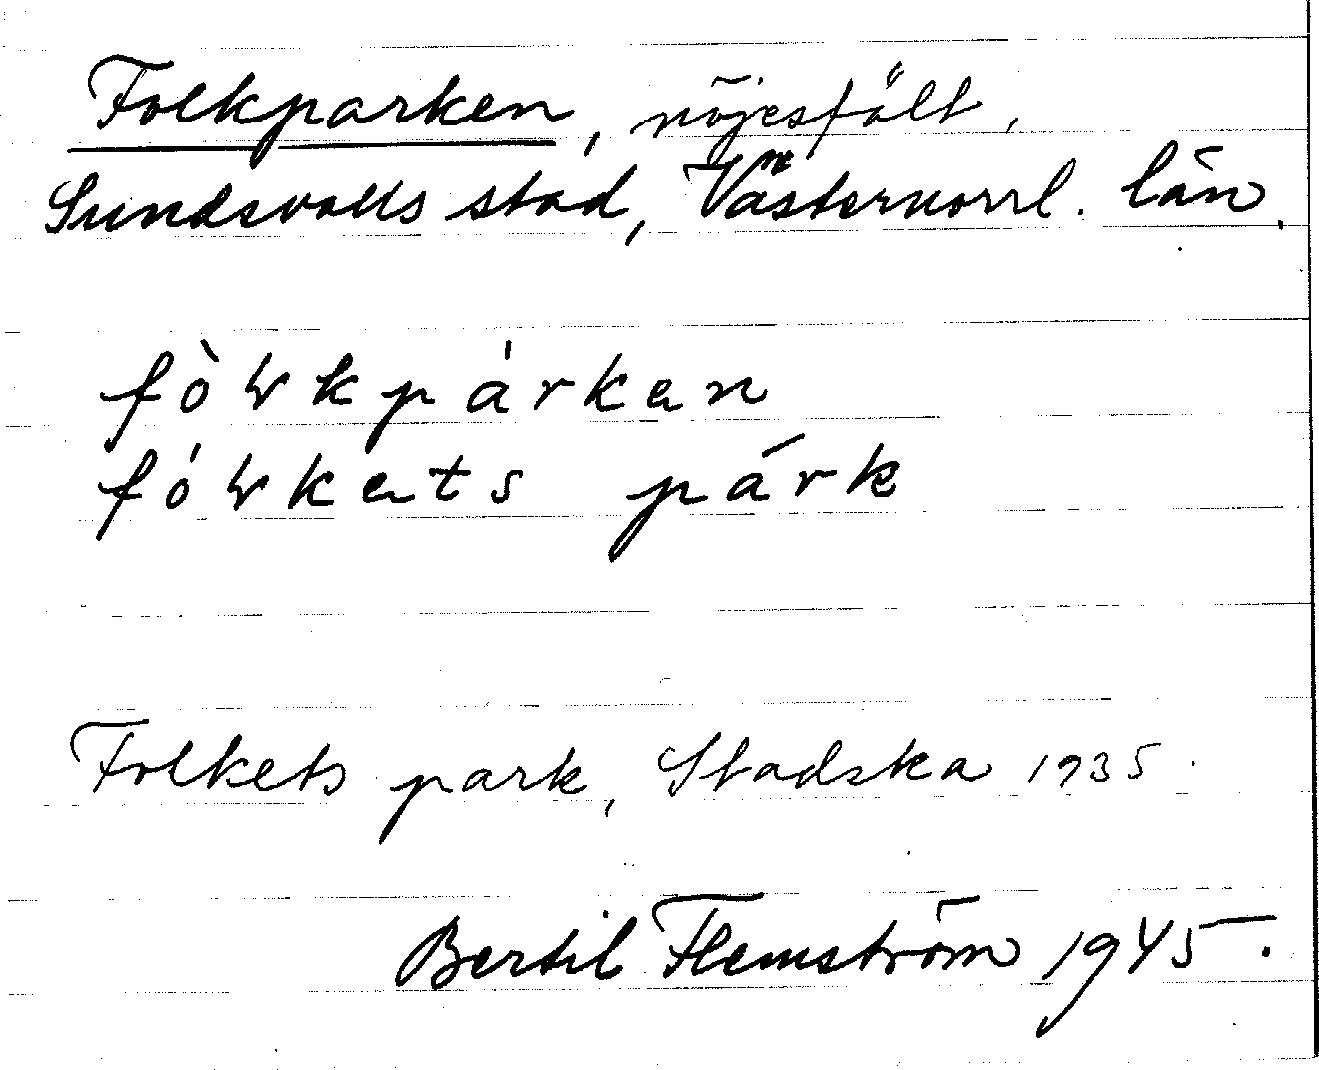 Folkparken, nöjesfält,
Sundsvalls stad, Västernorrl. län.
fòlkpárken
fólkets párk
Folkets park, Stadska 1935.
Bertil Flemström 1945.